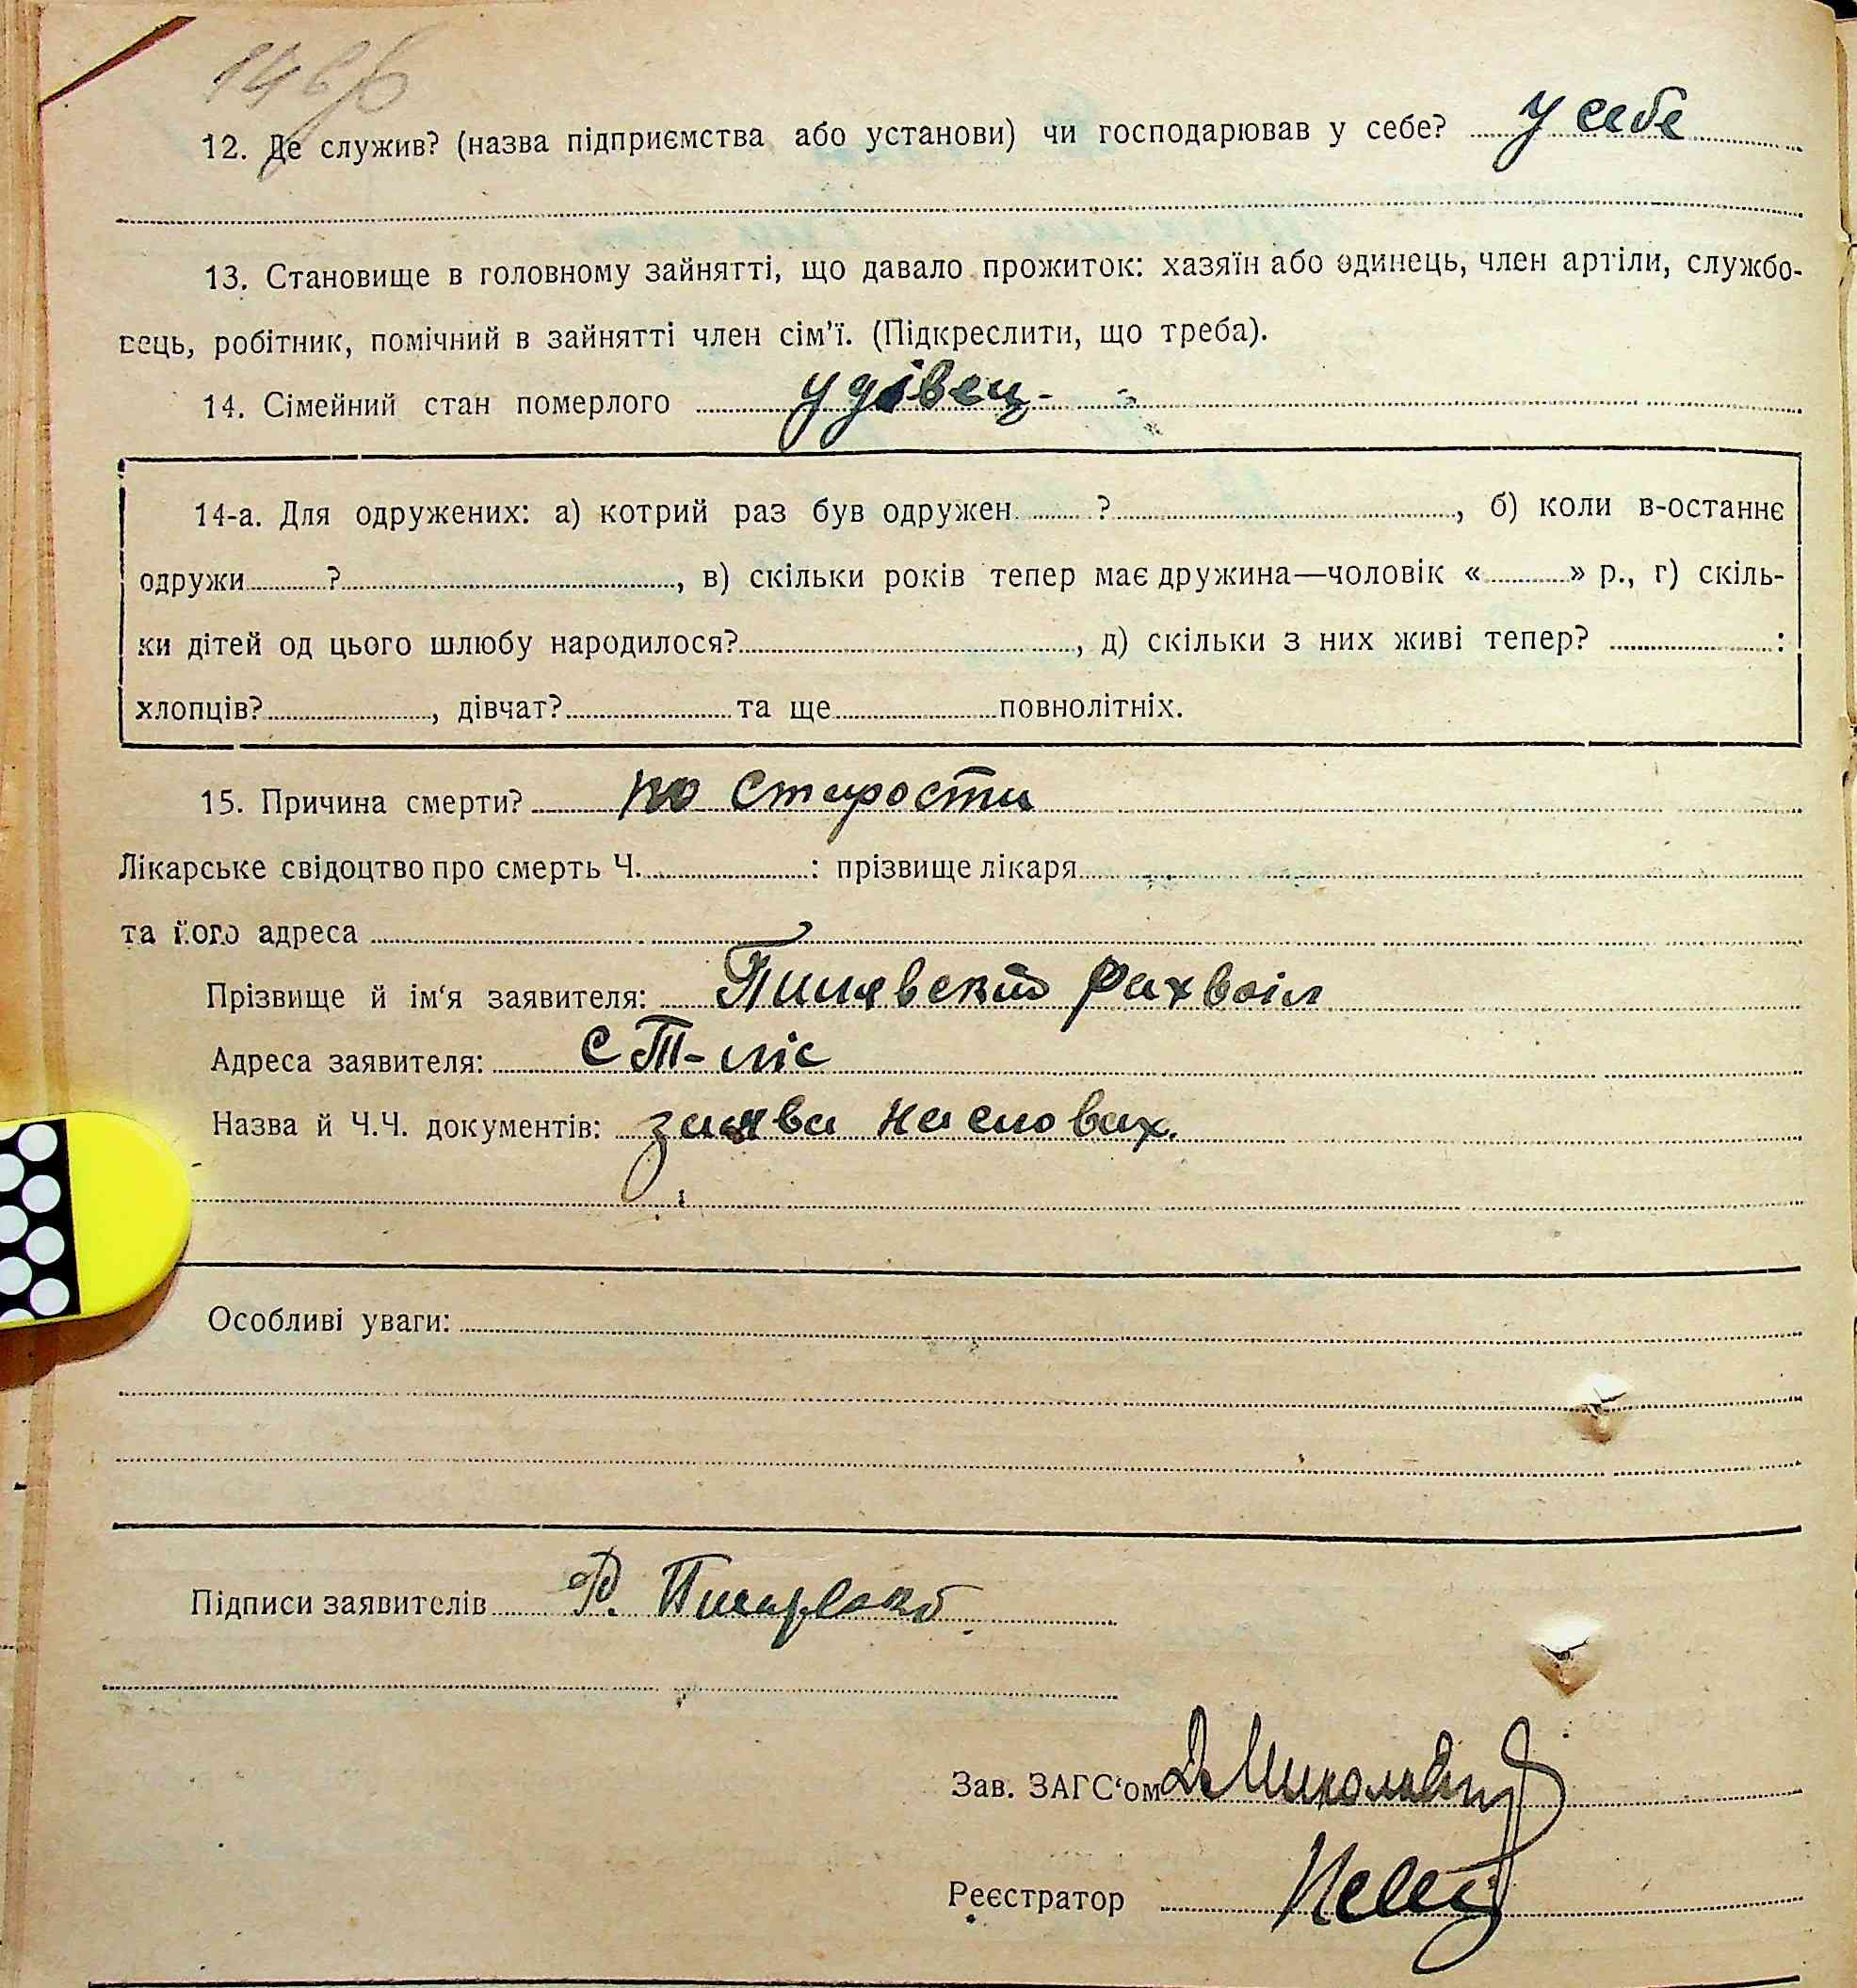 14 зв
12. Де служив? (назва підприємства або установи) чи господарював у себе? у себе
13. Становище в головному зайнятті, що давало прожиток: хазяїн або одинець, член артіли, службо-
вець, робітник, помічний в зайнятті член сім'ї. (Підкреслити, що треба).
14. Сімейний стан померлого удівец-
14-а. Для одружених: а) котрий раз був одружен ?, б) коли в-останнє
одружи ?, в) скільки років тепер має дружина—чоловік « » р., г) скіль-
ки дітей од цього шлюбу народилося?, д) скільки з них живі тепер? :
хлопців?, дівчат? та ще повнолітніх.
15. Причина смерти? по старости
Лікарське свідоцтво про смерть Ч. : прізвище лікаря
та його адреса
Прізвище й ім'я заявителя: Рахвоіл
Адреса заявителя: ліс
Назва й Ч.Ч. документів: заява на словах.
Особливі уваги:
Підписи заявителів
Зав. ЗАГС'ом
Реєстратор